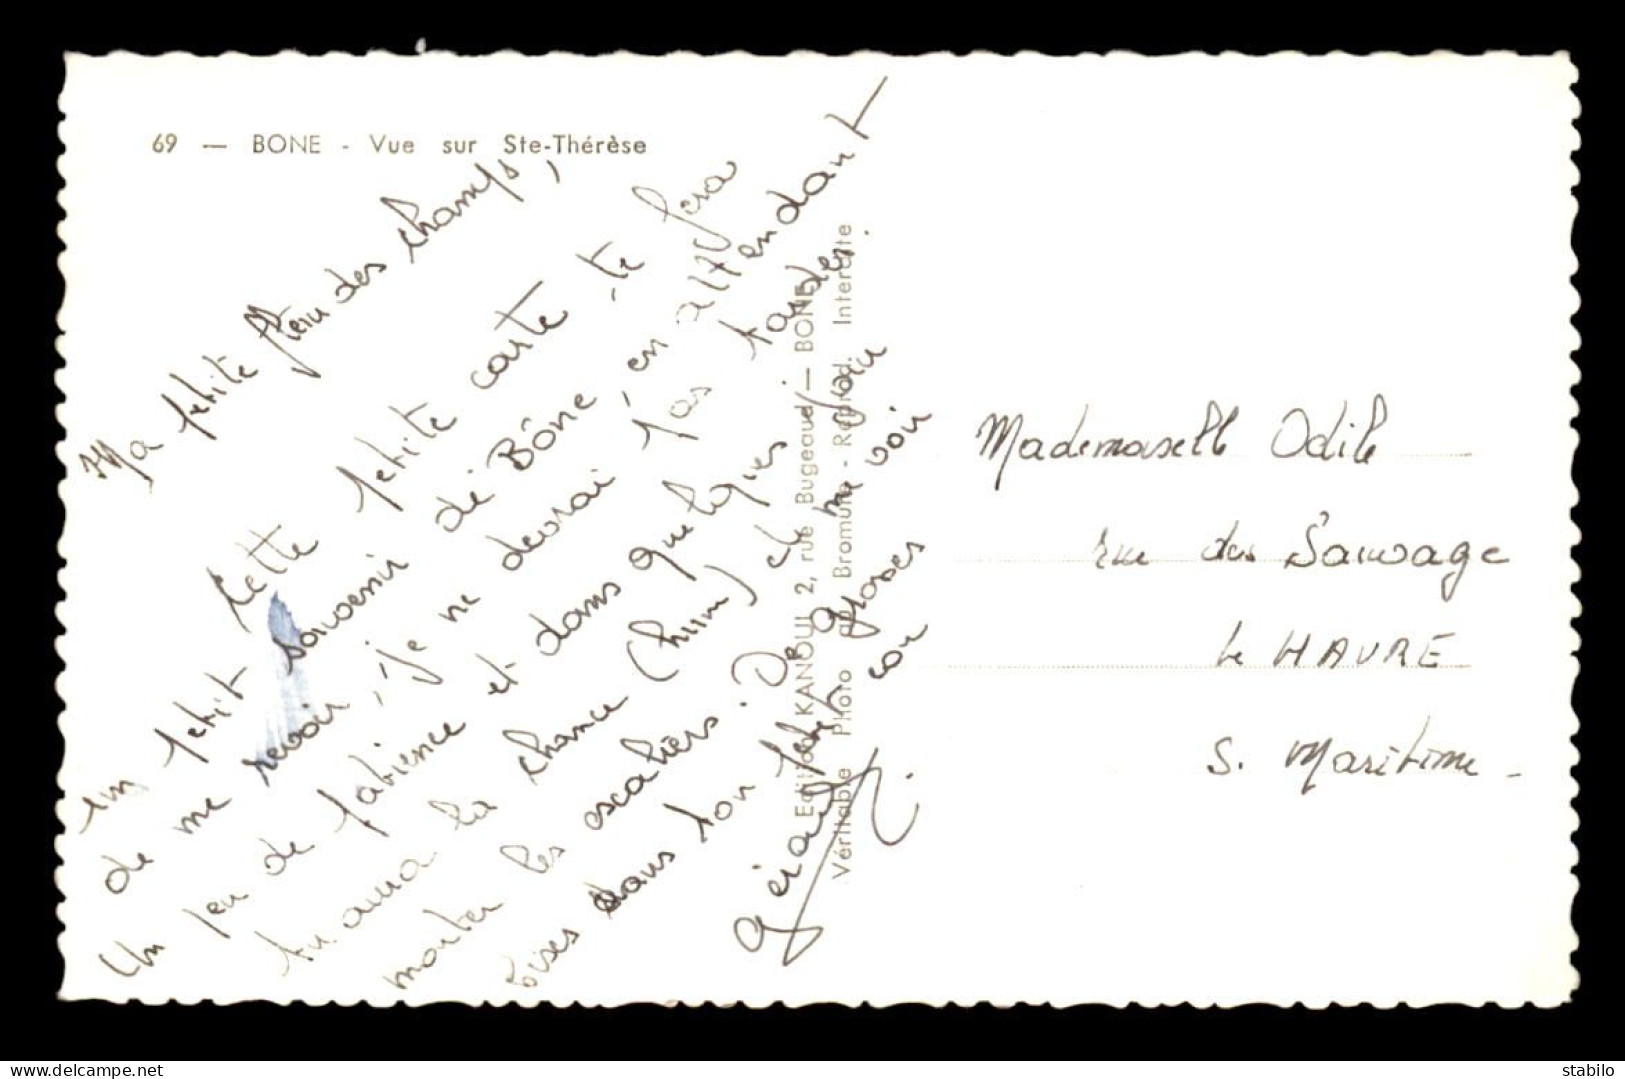 69 — BONE - Vue sur Ste-Thérèse
Ma petite fleur des champs,
Cette petite carte te fera
un petit souvenir de Bône, en attendant
de me revoir, je ne devrai pas tarder.
Un peu de patience et dans quelques jours
tu aura la chance (hum) de me voir
monter les escaliers. De grosses
bises dans ton petit cou
Gérard
Edition KANOUI 2, rue Bugeaud — BONE
Véritable Photo au Bromure - Reprod. Interdite
Mademoselle Odile
rue des Sauvage
Le HAVRE
S. Maritime -
www.delcampe.net
stabilo